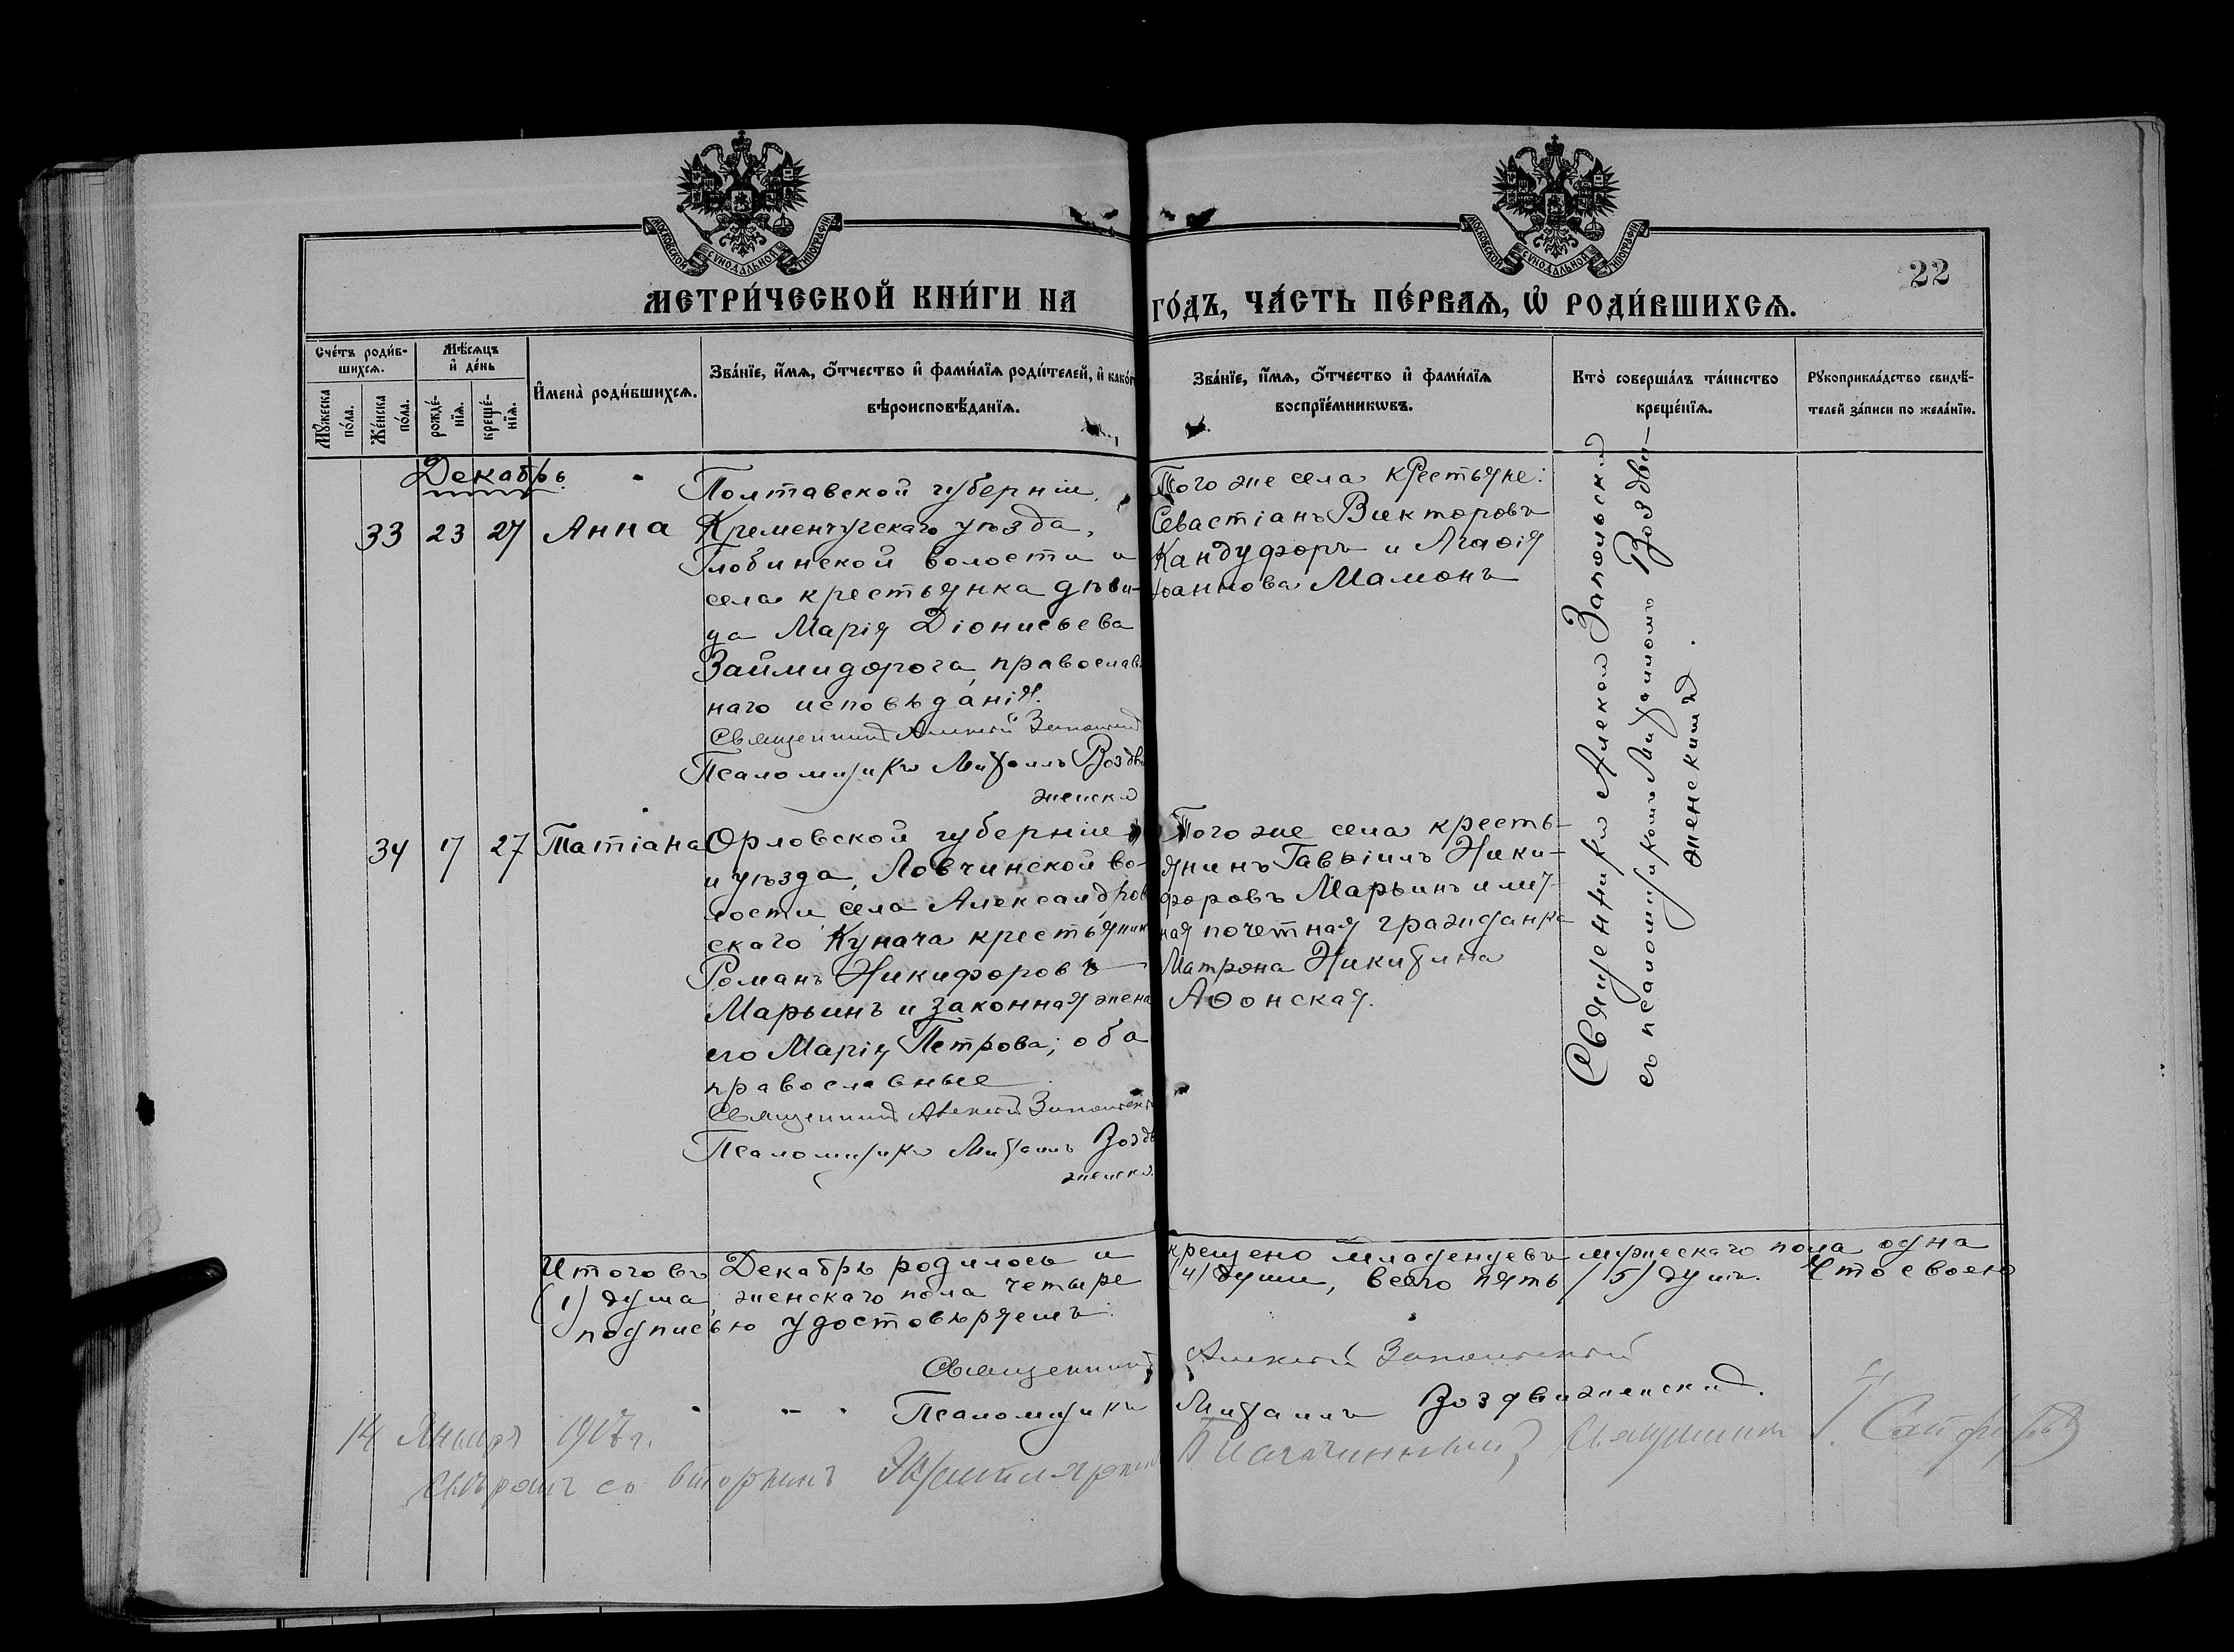 МОСКОВСКОЙ СѴНОДАЛЬНОЙ ТИПОГРАФІИ
МОСКОВСКОЙ СѴНОДАЛЬНОЙ ТИПОГРАФІИ
22
МЕТРИ́ЧЕСКОЙ КНИ́ГИ НА ГО́ДЪ, ЧА́СТЬ ПЕ́РВАѦ, Ѡ РОДИ́ВШИХСѦ.
Сче́тъ роди́в-
шихсѧ.
Мꙋ́жеска
по́ла.
Же́нска
по́ла.
Мѣ́сѧцъ
и҆ де́нь
рожде́-
нїѧ.
креще́-
нїѧ.
И҆мена̀ роди́вшихсѧ.
Зва́нїе, и҆́мѧ, ѻ҆́тчество и҆ фами́лїѧ роди́телей, и҆ како́гѡ
вѣроисповѣ́данїѧ.
Зва́нїе, и҆́мѧ, ѻ҆́тчество и҆ фами́лїѧ
воспрїе́мникѡвъ.
Кто̀ соверша́лъ та́инство
креще́нїѧ.
Рꙋкоприкла́дство свидѣ́-
телей за́писи по жела́нїю.
Декабрь
33 23 27 Анна
Полтавской губерніи,
Кременчугскаго уѣзда,
Глобинской волости и
села крестьянка дѣви-
ца Марія Діонисьева
Займидорога, православ-
наго исповѣданія.
Священникъ Алексій Запольскій
Псаломщикъ Михаилъ Воздви-
женскій
Того же села крестьяне:
Севастіанъ Викторовъ
Кандуфоръ и Агаѳія
Іоаннова Мамонъ
34 17 27 Татіана
Орловской губерніи
и уѣзда, Ловчинской во-
лости села Александров-
скаго Кунача крестьянинъ
Романъ Никифоровъ
Марьинъ и законная жена
его Марія Петрова; оба
православные
Священникъ Алексій Запольскій
Псаломщикъ Михаилъ Воздви-
женскій
Того же села кресть-
янинъ Гавріилъ Ники-
форовъ Марьинъ и лич-
ная почетная гражданка
Матрона Никитина
Аѳонская.
Священникъ Алексій Запольскій
съ псаломщикомъ Михаиломъ Воздви-
женскимъ.
Итого въ Декабрѣ родилось и крещено младенцевъ мужескаго пола одна
(1) душа, женскаго пола четыре (4) души, всего пять (5) душъ. Что своею
подписью удостовѣряемъ:
Священникъ Алексій Запольскій
Псаломщикъ Михаилъ Воздвиженскій.
14 Января 1907 г.
Свѣрялъ со вторымъ экземпляромъ Благочинный, Священникъ